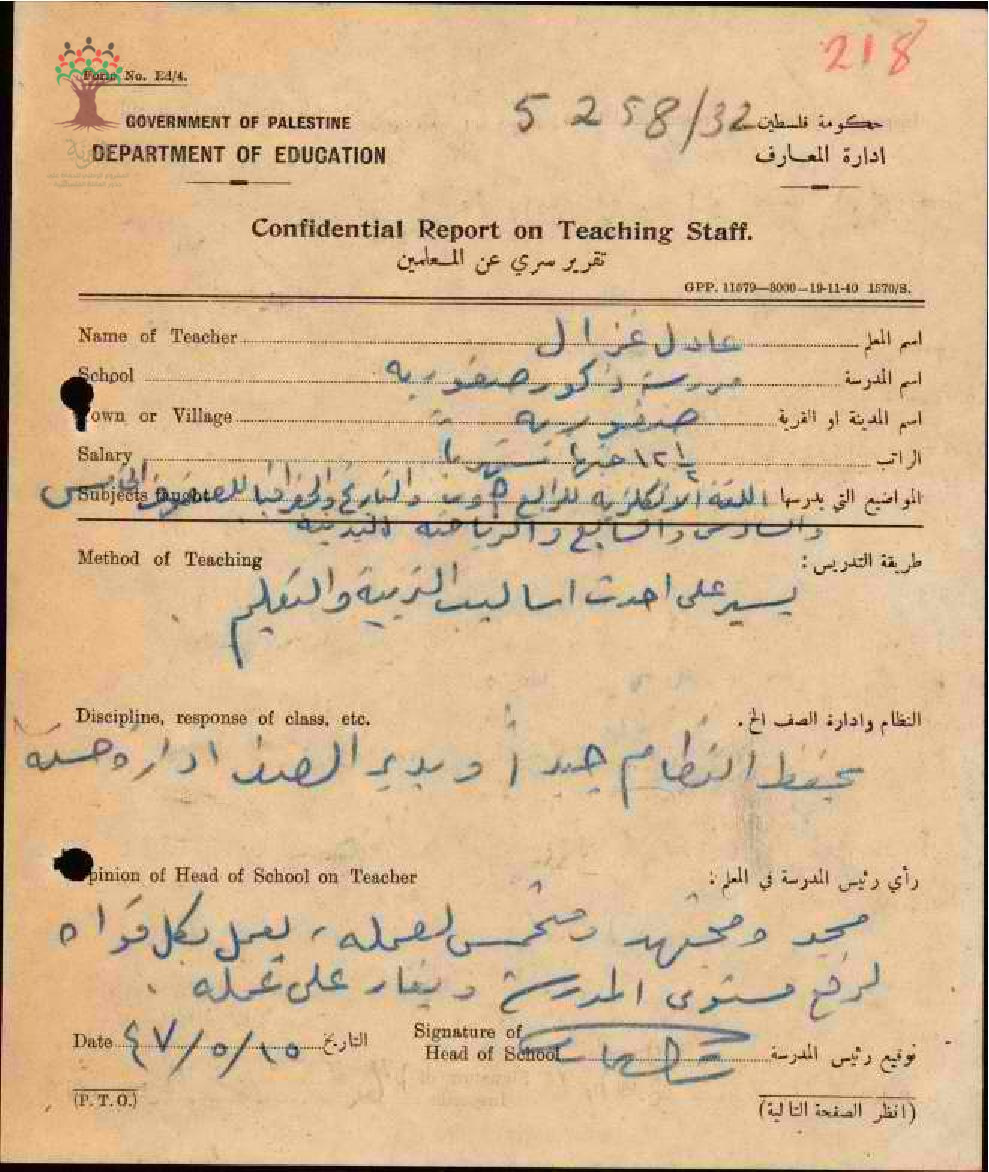 218
Form No. Ed/4.
5258/32
GOVERNMENT OF PALESTINE
حكومة فلسطين
DEPARTMENT OF EDUCATION
ادارة المعارف
Confidential Report on Teaching Staff.
تقرير سري عن المعلمين
GPP. 11579—3000—19-11-40 1570/S.
Name of Teacher عادل غزال اسم المعلم
School مدرسة ذكور صفورية اسم المدرسة
Town or Village صفورية اسم المدينة او القرية
Salary ١٢ ١/٢ جنيها شهريا الراتب
Subjects taught المواضيع التي يدرسها اللغة الانكليزية للرابع والتاريخ والجغرافيا للصفوف الخامس
والسادس والسابع والرياضة البدنية
Method of Teaching طريقة التدريس :
يسير على احدث اساليب التربية والتعليم
Discipline, response of class, etc. النظام وادارة الصف الخ .
يحفظ النظام جيدا ويدير الصف ادارة حسنة
Opinion of Head of School on Teacher رأي رئيس المدرسة في المعلم :
مجد ومجتهد ومتحمس لعمله ، يعمل بكل قواه
لرفع مستوى المدرسة ويغار على عمله .
Date ٤٧/٥/١٥ التاريخ
Signature of
Head of School توقيع رئيس المدرسة
(P. T. O.)
(انظر الصفحة التالية)